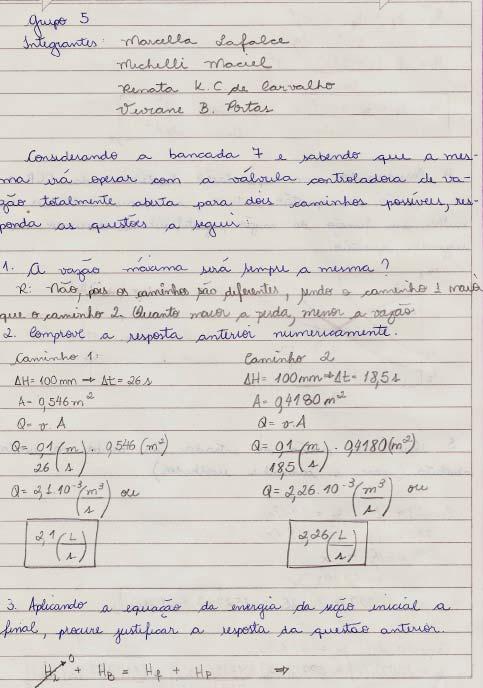 Grupo 5
Integrantes: Marcella Lafalce
Michelli Maciel
Renata K. C de Carvalho
Viviane B. Portas
Considerando a bancada 7 e sabendo que a mes-
ma irá operar com a válvula controladora de va-
zão totalmente aberta para dois caminhos possíveis, res-
ponda as questões a seguir:
1. A vazão máxima será sempre a mesma?
R: Não, pois os caminhos são diferentes, sendo o caminho 1 maior
que o caminho 2. Quanto maior a perda, menor a vazão
2. Comprove a resposta anterior numericamente.
Caminho 1: Caminho 2
ΔH = 100mm → Δt = 26s ΔH = 100mm → Δt = 18,5s
A = 0,546m² A = 0,4180m²
Q = v. A Q = v. A
Q = 0,1/26 (m/s) . 0,546 (m²) Q = 0,1/18,5 (m/s) . 0,4180 (m²)
Q = 2,1.10⁻³ (m³/s) ou Q = 2,26.10⁻³ (m³/s) ou
2,1 (L/s) 2,26 (L/s)
3. Aplicando a equação da energia da seção inicial a
final, procure justificar a resposta da questão anterior.
0
+ HB = Hf + Hp ⇒